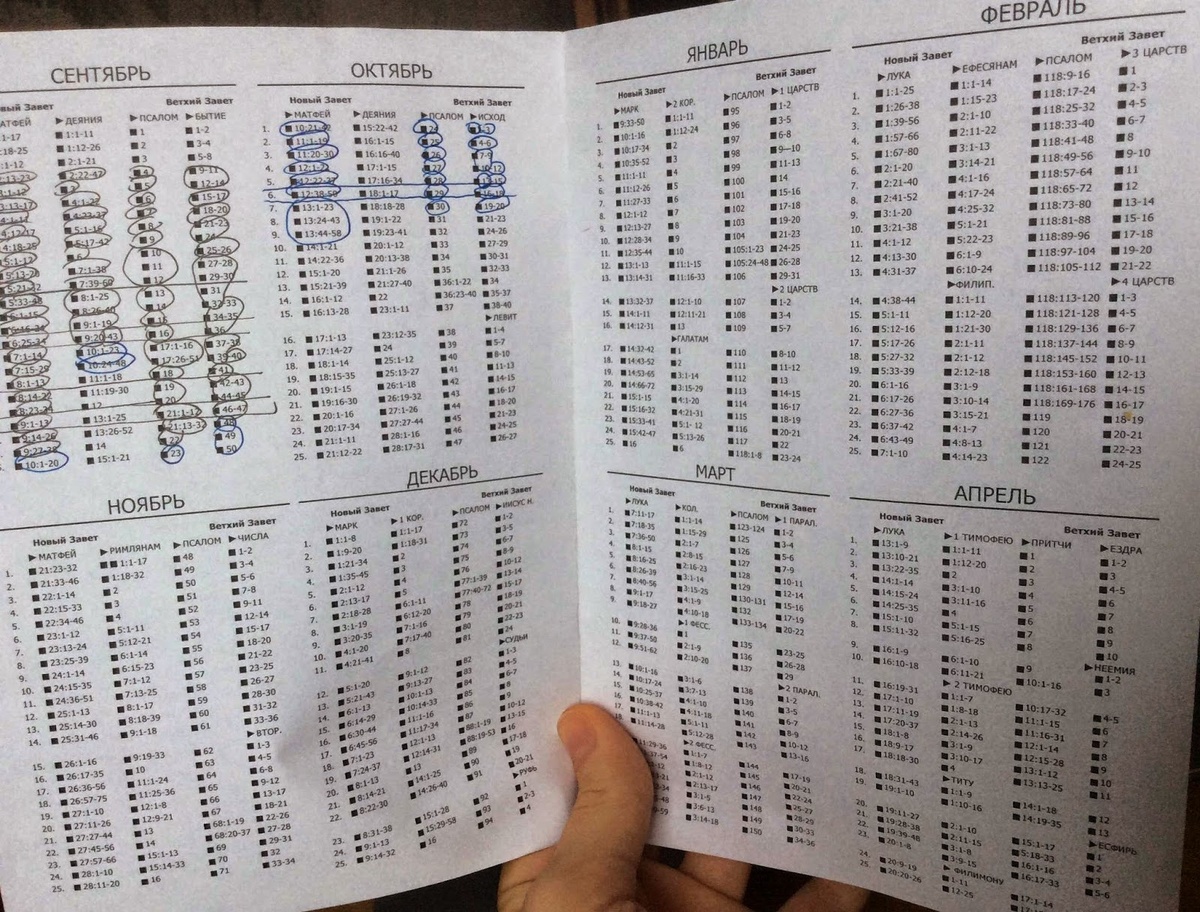 СЕНТЯБРЬ
Ветхий Завет
ДЕЯНИЯ ПСАЛОМ БЫТИЕ
1:1-11 1 1-2
1:12-26 2 3-4
2:1-21 3 5-8
2:22-47 4 9-11
5 12-14
6 15-17
7 18-20
5:1-16 8 21-23
5:17-42 9 24
6 10 25-26
7:1-38 11 27-28
7:39-60 12 29-30
8:1-25 13 31
8:26-40 14 32-33
9:1-19 15 34-35
6:25-34 9:20-43 16 36
7:1-14 10:1-23 17:1-16 37-38
7:15-29 10:24-48 17:26-51 39-40
8:1-13 11:1-18 18 41
8:14-22 11:19-30 19 42-43
8:23-34 12 20 44-45
9:1-13 13:1-25 21:1-12 46-47
9:14-26 13:26-52 21:13-32 48
14 22 49
10:1-20 15:1-21 23 50
ОКТЯБРЬ
Новый Завет Ветхий Завет
МАТФЕЙ ДЕЯНИЯ ПСАЛОМ ИСХОД
1. 10:21-42 15:22-42 24 1-3
2. 11:1-19 16:1-15 25 4-6
3. 11:20-30 16:16-40 26 7-9
4. 12:1-21 17:1-15 27 10-12
5. 12:22-37 17:16-34 28 13-15
6. 12:38-50 18:1-17 29 16-18
7. 13:1-23 18:18-28 30 19-20
8. 13:24-43 19:1-22 31 21-23
9. 13:44-58 19:23-41 32 24-26
10. 14:1-21 20:1-12 33 27-29
11. 14:22-36 20:13-38 34 30-31
12. 15:1-20 21:1-26 35 32-33
13. 15:21-39 21:27-40 36:1-22 34
14. 16:1-12 22 36:23-40 35-37
15. 16:13-28 23:1-11 37 38-40
ЛЕВИТ
16. 17:1-13 23:12-35 38 1-4
17. 17:14-27 24 39 5-7
18. 18:1-14 25:1-12 40 8-10
19. 18:15-35 25:13-27 41 11-13
20. 19:1-15 26:1-18 42 14-15
21. 19:16-30 26:19-32 43 16-17
22. 20:1-16 27:1-26 44 18-20
23. 20:17-34 27:27-44 45 21-23
24. 21:1-11 28:1-16 46 24-25
25. 21:12-22 28:17-31 47 26-27
НОЯБРЬ
Новый Завет Ветхий Завет
МАТФЕЙ РИМЛЯНАМ ПСАЛОМ ЧИСЛА
1. 21:23-32 1:1-17 48 1-2
2. 21:33-46 1:18-32 49 3-4
3. 22:1-14 2 50 5-6
4. 22:15-33 3 51 7-8
5. 22:34-46 4 52 9-11
6. 23:1-12 5:1-11 53 12-14
7. 23:13-24 5:12-21 54 15-17
8. 23:25-39 6:1-14 55 18-20
9. 24:1-14 6:15-23 56 21-22
10. 24:15-35 7:1-12 57 23-25
11. 24:36-51 7:13-25 58 26-27
12. 25:1-13 8:1-17 59 28-30
13. 25:14-30 8:18-39 60 31-32
14. 25:31-46 9:1-18 61 33-36
ВТОР.
15. 26:1-16 9:19-33 62 1-3
16. 26:17-35 10 63 4-5
17. 26:36-56 11:1-24 64 6-8
18. 26:57-75 11:25-36 65 9-12
19. 27:1-10 12:1-8 66 13-17
20. 27:11-26 12:9-21 67 18-21
21. 27:27-44 13 68:1-19 22-26
22. 27:45-56 14 68:20-37 27-28
23. 27:57-66 15:1-13 69 29-31
24. 28:1-10 15:14-33 70 32
25. 28:11-20 16 71 33-34
ДЕКАБРЬ
Новый Завет Ветхий Завет
МАРК 1 КОР. ПСАЛОМ ИИСУС Н.
1. 1:1-8 1:1-17 72 1-2
2. 1:9-20 1:18-31 73 3-5
3. 1:21-34 2 74 6-7
4. 1:35-45 3 75 8-9
5. 2:1-12 4 76 10-12
6. 2:13-17 5 77:1-39 13-14
7. 2:18-28 6:1-11 77:40-72 15-17
8. 3:1-19 6:12-20 78 18-19
9. 3:20-35 7:1-16 79 20-21
10. 4:1-20 7:17-40 80 22-23
11. 4:21-41 8 81 24
СУДЬИ
12. 5:1-20 9:1-12 82 1-3
13. 5:21-43 9:13-27 83 4-5
14. 6:1-13 10:1-13 84 6-7
15. 6:14-29 10:14-33 85 8
16. 6:30-44 11:1-16 86 9
17. 6:45-56 11:17-34 87 10-12
18. 7:1-23 12:1-13 88:1-19 13-15
19. 7:24-37 12:14-31 88:19-53 16
20. 8:1-13 13 89 17-18
21. 8:14-21 14:1-25 90 19
22. 8:22-30 14:26-40 91 20-21
РУФЬ
23. 8:31-38 15:1-28 92 1
24. 9:1-13 15:29-58 93 2-3
25. 9:14-32 16 94 4
ЯНВАРЬ
Новый Завет Ветхий Завет
МАРК 2 КОР. ПСАЛОМ 1 ЦАРСТВ
1. 9:33-50 1:1-11 95 1-2
2. 10:1-16 1:12-24 96 3-5
3. 10:17-34 2 97 6-8
4. 10:35-52 3 98 9-10
5. 11:1-11 4 99 11-13
6. 11:12-26 5 100 14
7. 11:27-33 6 101 15-16
8. 12:1-12 7 102 17-18
9. 12:13-27 8 103 19-20
10. 12:28-34 9 104 21-23
11. 12:35-44 10 105:1-23 24-25
12. 13:1-13 11:1-15 105:24-48 26-28
13. 13:14-31 11:16-33 106 29-31
2 ЦАРСТВ
14. 13:32-37 12:1-10 107 1-2
15. 14:1-11 12:11-21 108 3-4
16. 14:12-31 13 109 5-7
ГАЛАТАМ
17. 14:32-42 1 110 8-10
18. 14:43-52 2 111 11-12
19. 14:53-65 3:1-14 112 13
20. 14:66-72 3:15-29 113 14-15
21. 15:1-15 4:1-20 114 16-17
22. 15:16-32 4:21-31 115 18-19
23. 15:33-41 5:1-12 116 20-21
24. 15:42-47 5:13-26 117 22
25. 16 6 118:1-8 23-24
ФЕВРАЛЬ
Новый Завет Ветхий Завет
ЛУКА ЕФЕСЯНАМ ПСАЛОМ 3 ЦАРСТВ
1. 1:1-25 1:1-14 118:9-16 1
2. 1:26-38 1:15-23 118:17-24 2-3
3. 1:39-56 2:1-10 118:25-32 4-5
4. 1:57-66 2:11-22 118:33-40 6-7
5. 1:67-80 3:1-13 118:41-48 8
6. 2:1-20 3:14-21 118:49-56 9-10
7. 2:21-40 4:1-16 118:57-64 11
8. 2:41-52 4:17-24 118:65-72 12
9. 3:1-20 4:25-32 118:73-80 13-14
10. 3:21-38 5:1-21 118:81-88 15-16
11. 4:1-12 5:22-23 118:89-96 17-18
12. 4:13-30 6:1-9 118:97-104 19-20
13. 4:31-37 6:10-24 118:105-112 21-22
ФИЛИП. 4 ЦАРСТВ
14. 4:38-44 1:1-11 118:113-120 1-3
15. 5:1-11 1:12-20 118:121-128 4-5
16. 5:12-16 1:21-30 118:129-136 6-7
17. 5:17-26 2:1-11 118:137-144 8-9
18. 5:27-32 2:1-12 118:145-152 10-11
19. 5:33-39 2:12-18 118:153-160 12-13
20. 6:1-16 3:1-9 118:161-168 14-15
21. 6:17-26 3:10-14 118:169-176 16-17
22. 6:27-36 3:15-21 119 18-19
23. 6:37-42 4:1-7 120 20-21
24. 6:43-49 4:8-13 121 22-23
25. 7:1-10 4:14-23 122 24-25
МАРТ
Новый Завет Ветхий Завет
ЛУКА КОЛ. ПСАЛОМ 1 ПАРАЛ.
1. 7:11-17 1:1-14 123-124 1-2
2. 7:18-35 1:15-29 125 3-4
3. 7:36-50 2:1-7 126 5-6
4. 8:1-15 2:8-15 127 7-9
5. 8:16-25 2:16-23 128 10-11
6. 8:26-39 3:1-14 129 12-14
7. 8:40-56 3:15-25 130-131 15-16
8. 9:1-17 4:1-9 132 17-19
9. 9:18-27 4:10-18 133-134 20-22
1 ФЕСС.
10. 9:28-36 1 135 23-25
11. 9:37-50 2:1-9 136 26-28
12. 9:51-62 2:10-20 137 29
2 ПАРАЛ.
13. 10:1-16 3:1-6 138 1-2
14. 10:17-24 3:7-13 139 3-5
15. 10:25-37 4:1-10 140 6-7
16. 10:38-42 4:11-18 141 8-9
17. 11:1-13 5:1-11 142 10-12
11:14-28 5:12-28 143 13-16
2 ФЕСС.
11:29-36 1:1-7 144 17-19
1:8-12 145 20-21
2:1-12 146 22-24
2:13-17 147 25-27
3:1-5 148 28-29
3:6-13 149 30-33
3:14-18 150 34-36
АПРЕЛЬ
Новый Завет Ветхий Завет
ЛУКА 1 ТИМОФЕЮ ПРИТЧИ ЕЗДРА
1. 13:1-9 1:1-11 1 1-2
2. 13:10-21 1:12-20 2 3
3. 13:22-35 2 3 4-5
4. 14:1-14 3:1-10 4 6
5. 14:15-24 3:11-16 5 7
6. 14:25-35 4 6 8
7. 15:1-10 5:1-15 7 9
8. 15:11-32 5:16-25 8 10
НЕЕМИЯ
9. 16:1-9 6:1-10 9 1-2
10. 16:10-18 6:11-21 10:1-16 3
2 ТИМОФЕЮ
11. 16:19-31 1:1-7 10:17-32 4-5
12. 17:1-10 1:8-18 11:1-15 6
13. 17:11-19 2:1-13 11:16-31 7
14. 17:20-37 2:14-26 12:1-14 8
15. 18:1-8 3:1-9 12:15-28 9
16. 18:9-17 3:10-17 13:1-12 10
17. 18:18-30 4 13:13-25 11
ТИТУ
18. 18:31-43 1:1-9 14:1-18 12
19. 19:1-10 1:10-16 14:19-35 13
ЕСФИРЬ
20. 19:11-27 2:1-10 15:1-17 1
21. 19:28-38 2:11-15 15:18-33 2
22. 19:39-48 3:1-8 16:1-16 3-4
23. 20:1-8 3:9-15 16:17-33 5-6
ФИЛИМОНУ
24. 20:9-19 1-11 17:1-14
25. 20:20-26 12-25